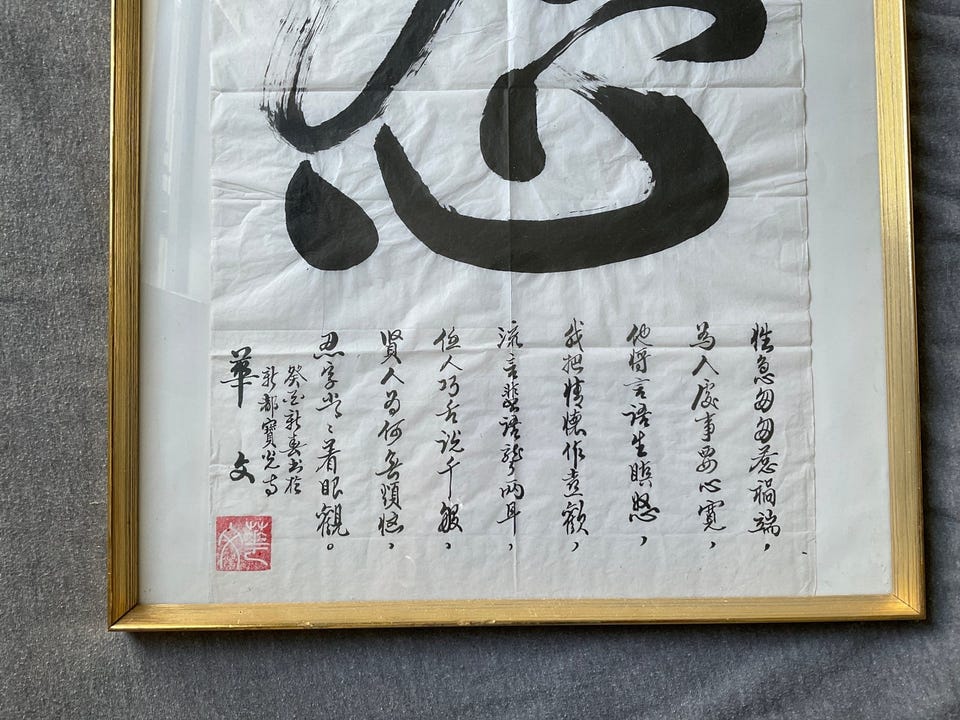 性急匆匆惹禍端，
為人處事要心寬，
他將言語生瞋怒，
我把情懷作喜歡，
流言蜚語聾兩耳，
任人巧舌说千般，
賢人為何無煩惱，
忍字常〻着眼觀。
癸酉新春书於
新都寶光寺
華文
華文